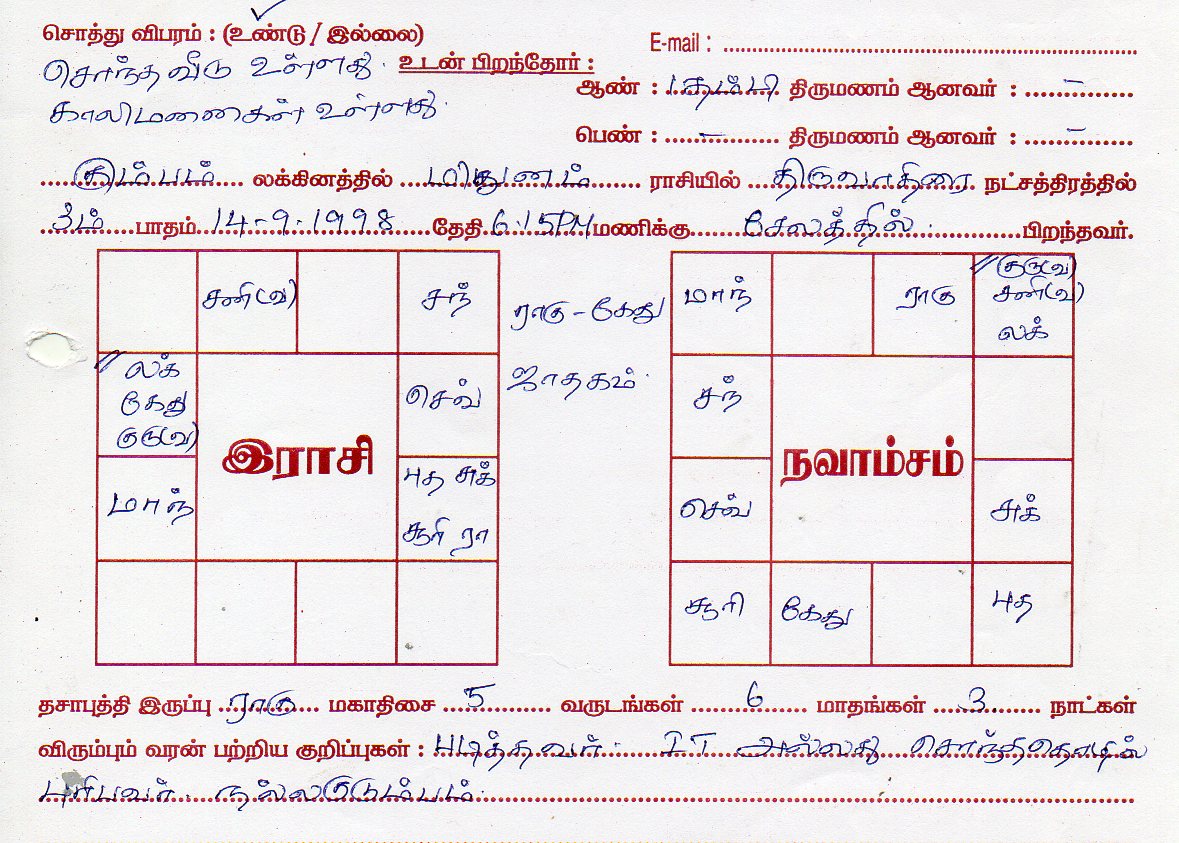 சொத்து விபரம் : (உண்டு / இல்லை)
E-mail :
சொந்த வீடு உள்ளது.
உடன் பிறந்தோர் :
காலிமனைகள் உள்ளது.
ஆண் : 1 தம்பி திருமணம் ஆனவர் : –
பெண் : – திருமணம் ஆனவர் : –
கும்பம் லக்கினத்தில் மிதுனம் ராசியில் திருவாதிரை நட்சத்திரத்தில்
3ம் பாதம் 14-9-1998 தேதி 6.15PM மணிக்கு சேலத்தில் பிறந்தவர்.
சனி(வ) சந்
லக்
கேது
குரு(வ)
செவ்
மாந்
இராசி
புத சுக்
சூரி ரா
ராகு - கேது
ஜாதகம்.
மாந் ராகு
குரு(வ)
சனி(வ)
லக்
சந்
நவாம்சம்
செவ் சுக்
சூரி கேது புத
தசாபுத்தி இருப்பு ராகு மகாதிசை 5 வருடங்கள் 6 மாதங்கள் 3 நாட்கள்
விரும்பும் வரன் பற்றிய குறிப்புகள் : படித்தவர். IT அல்லது சொந்ததொழில்
புரிபவர். நல்லகுடும்பம்.